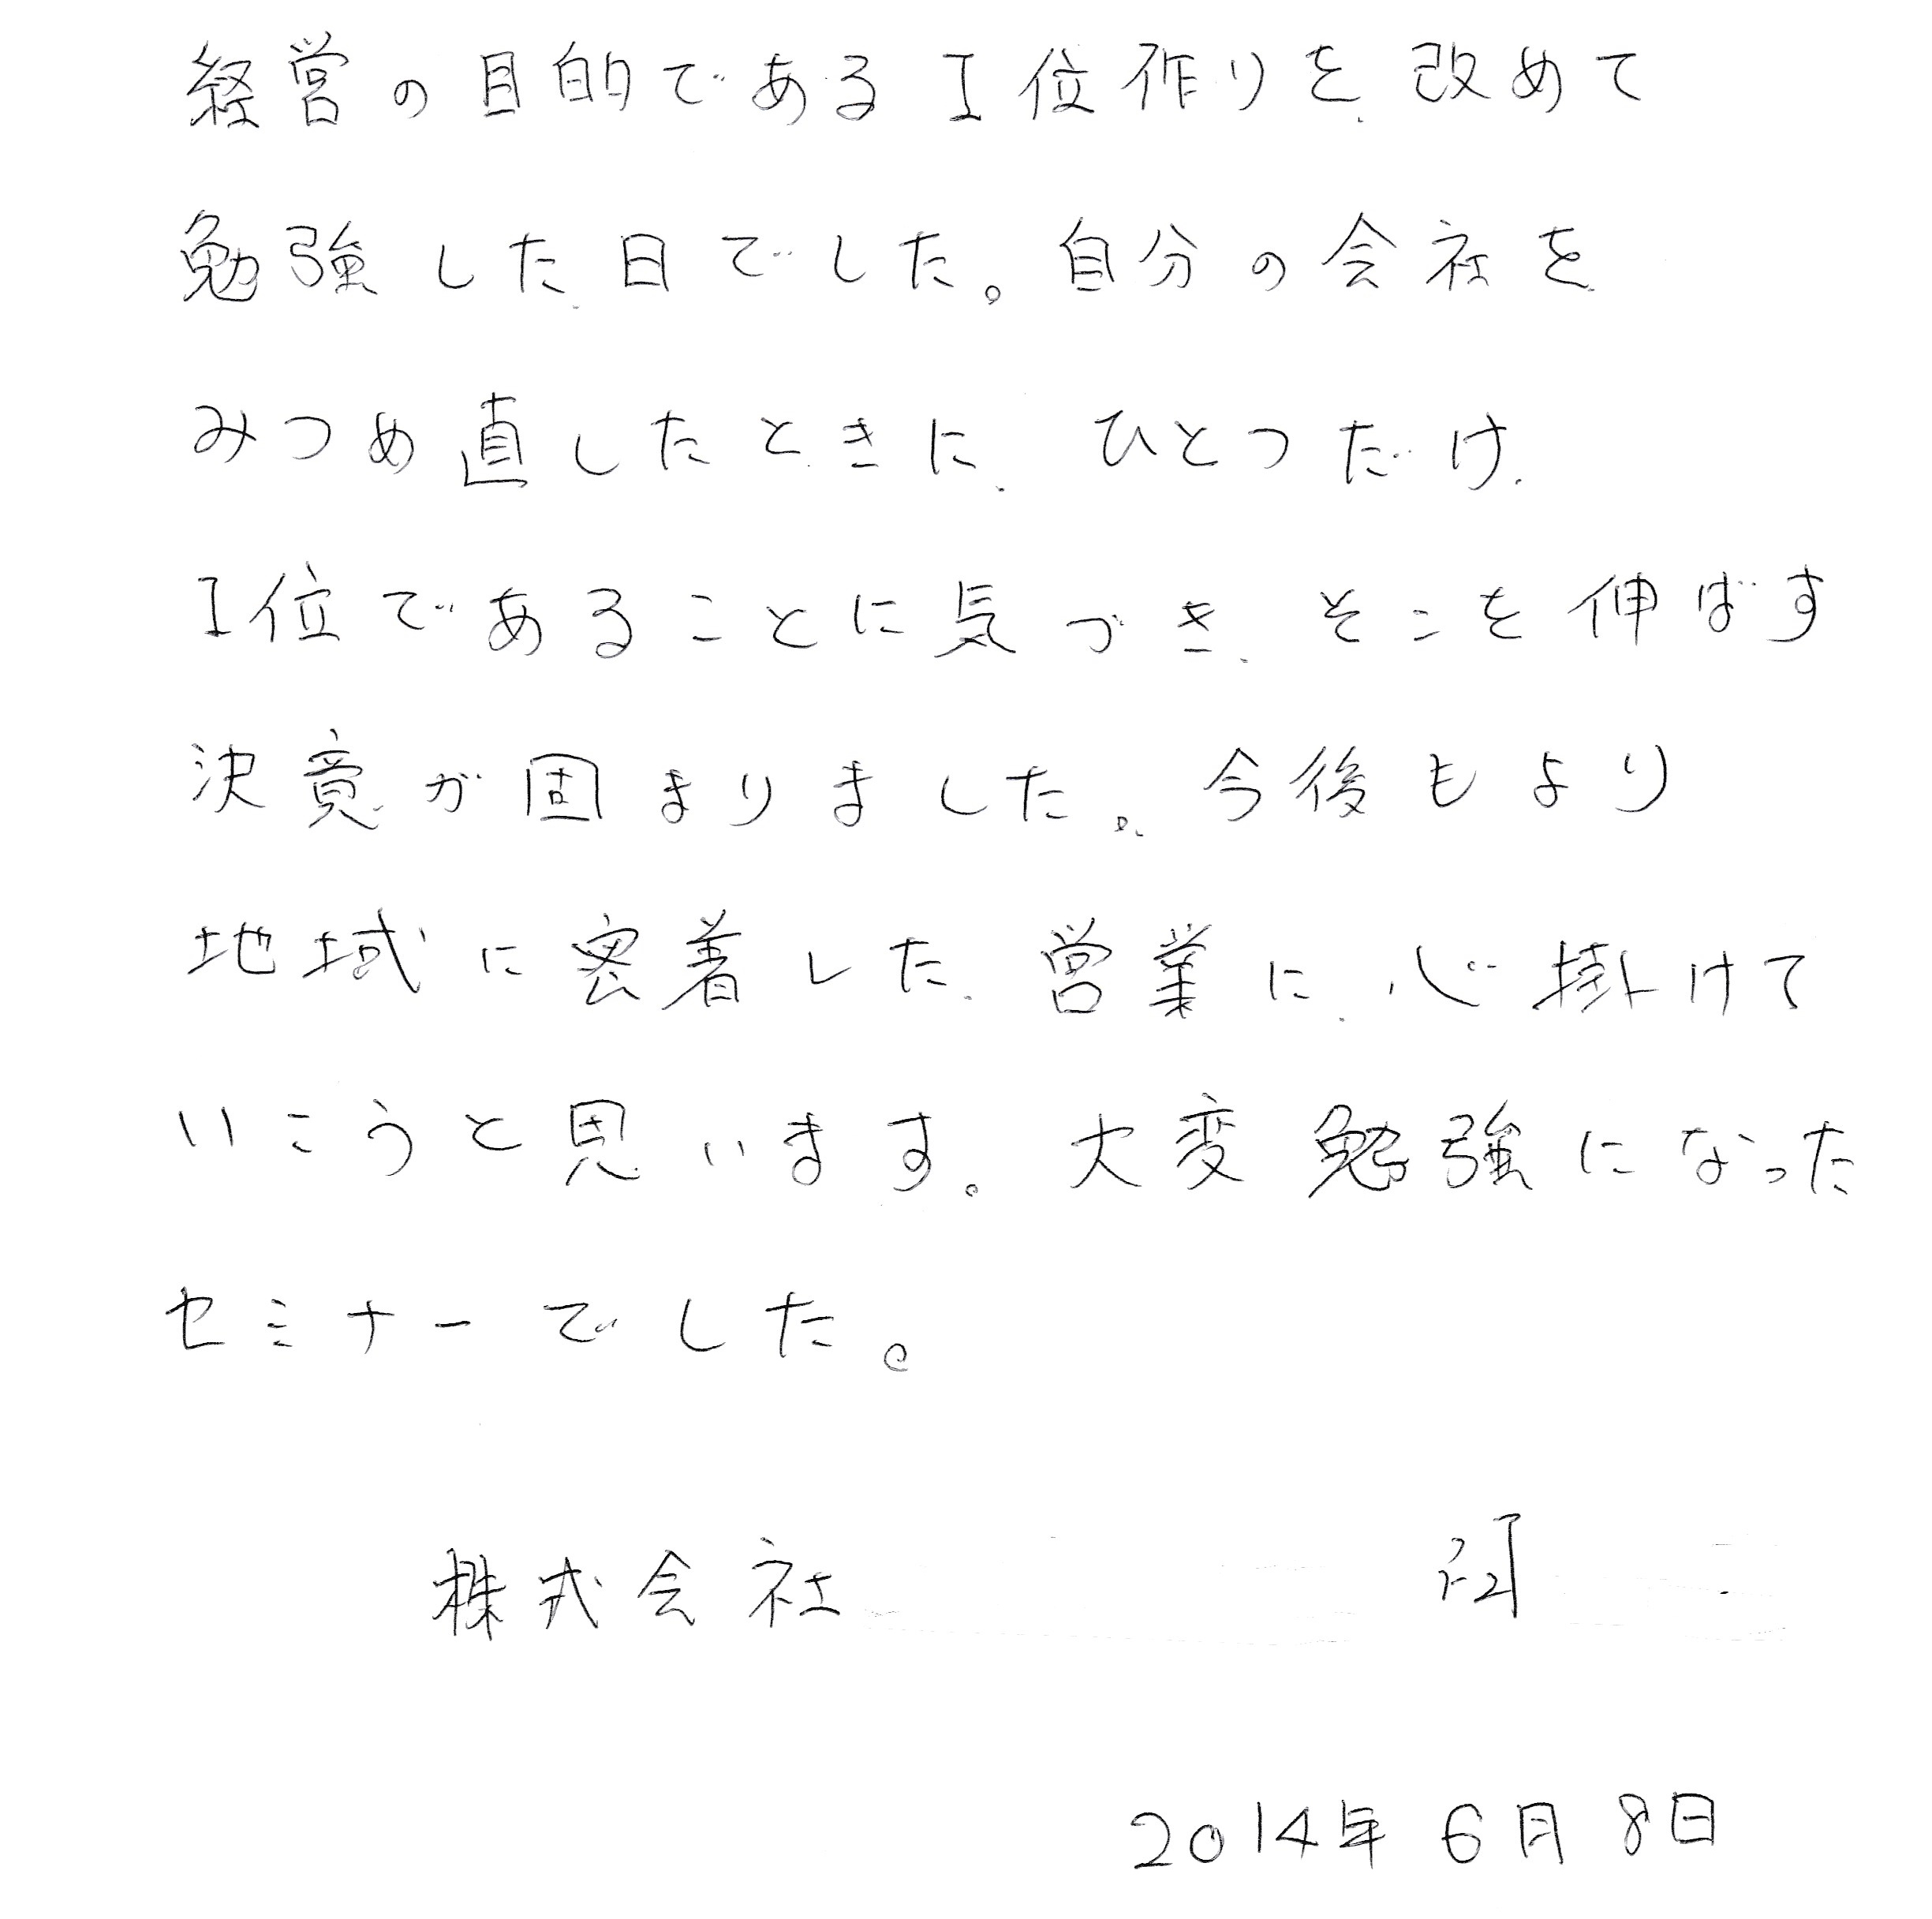 経営の目的である1位作りを改めて
勉強した日でした。自分の会社を
みつめ直したときに ひとつだけ
1位であることに気づき そこを伸ばす
決意が固まりました。今後もより
地域に密着した営業に心掛けて
いこうと思います。大変勉強になった
セミナーでした。
株式会社
2014年6月8日